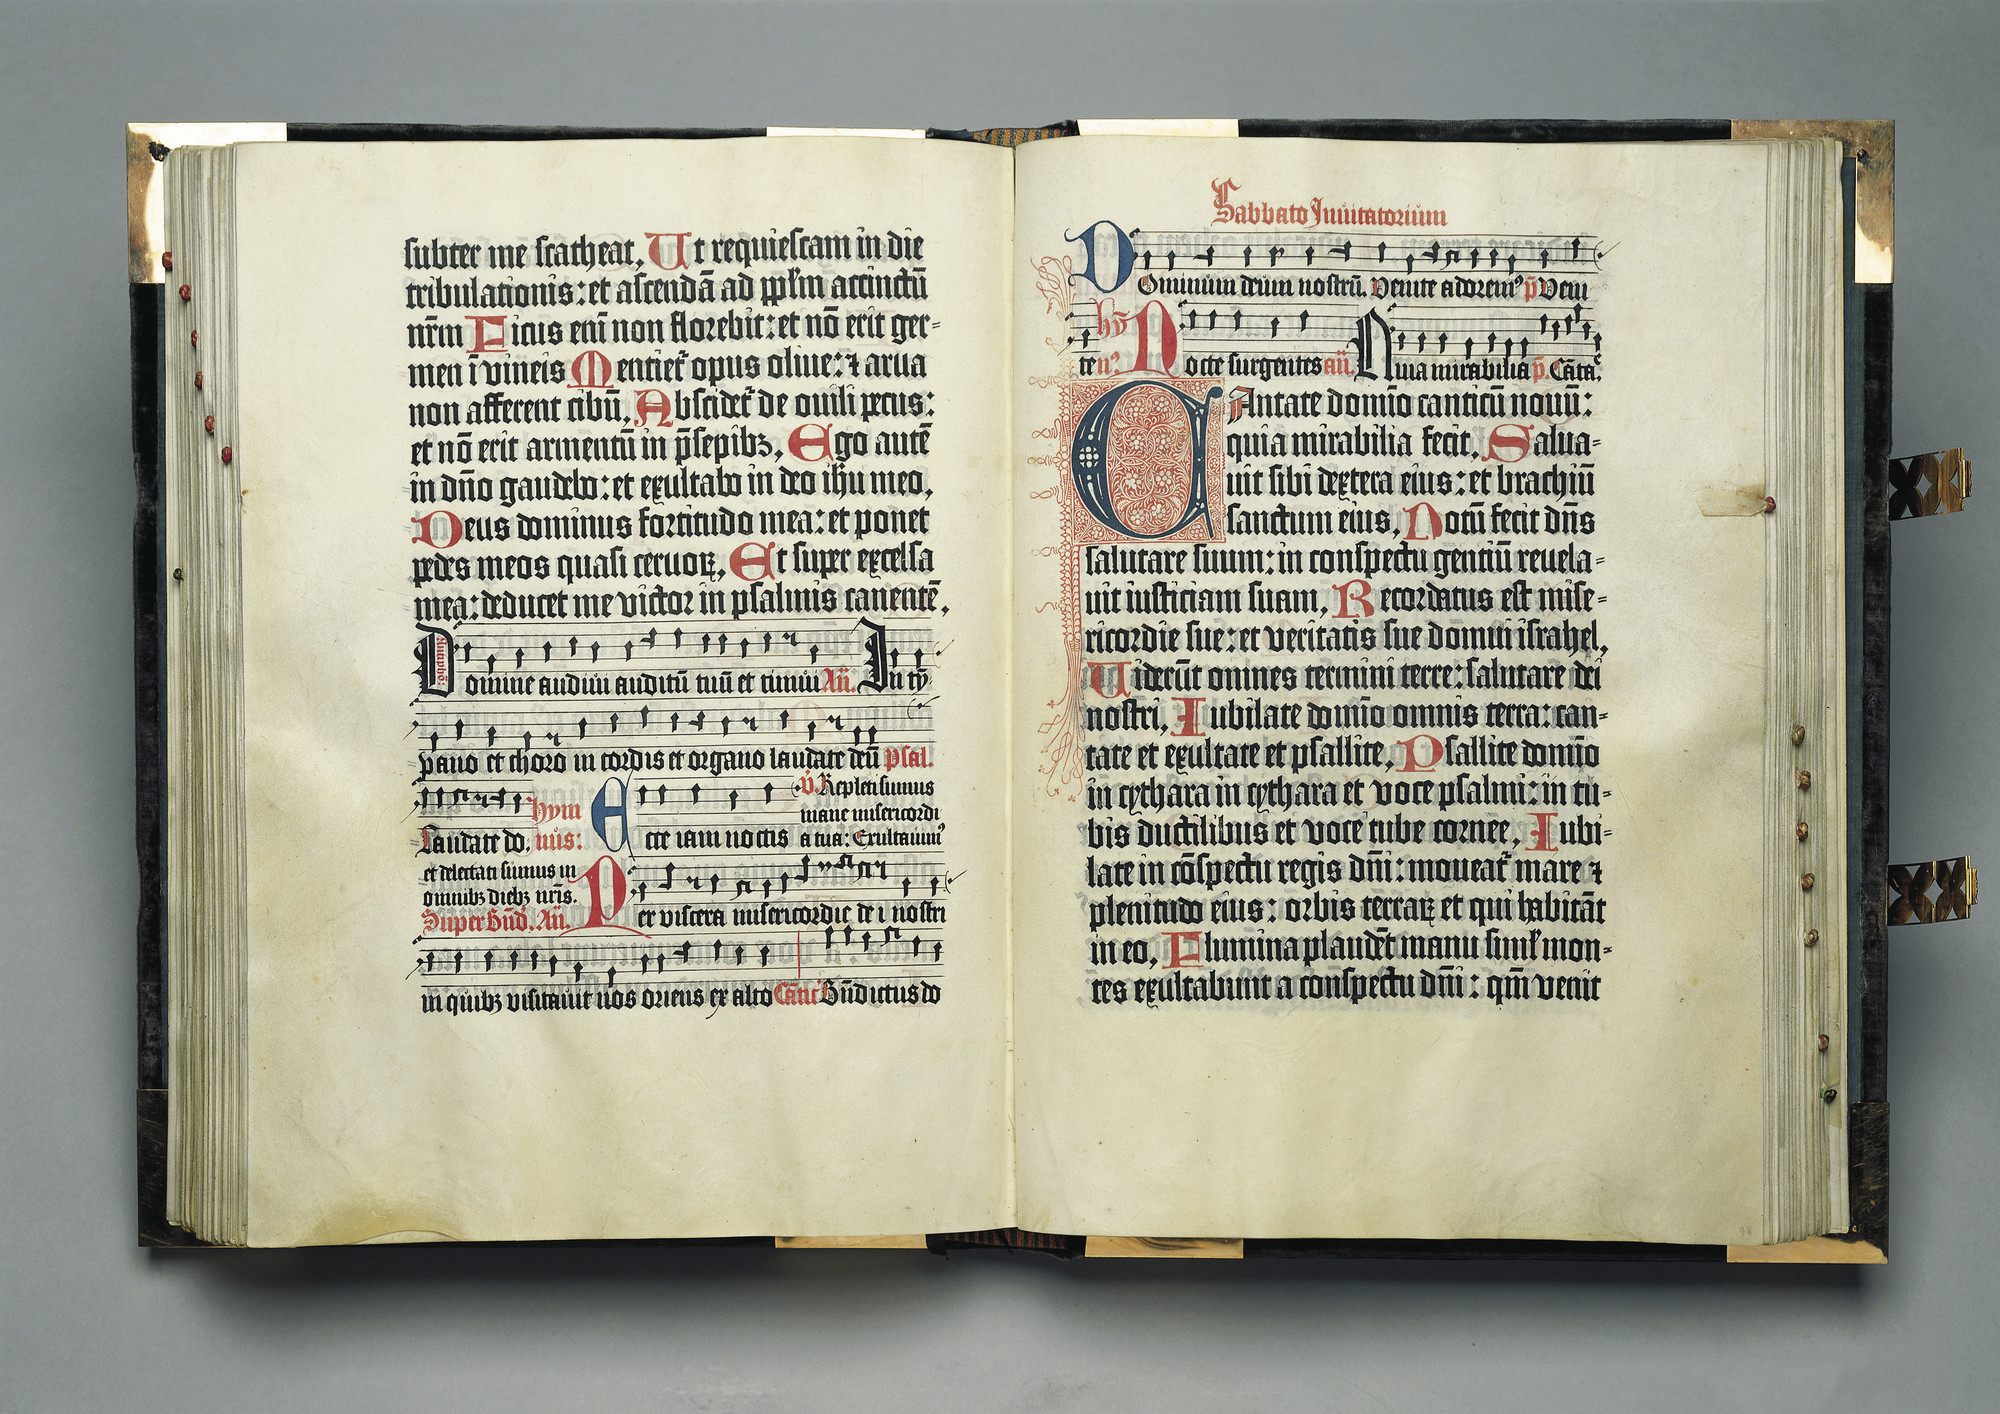 subter me scatheat, Ut requiescam in die
tribulationis: et ascendā ad pplm accinctū
nr̄m Ficus eni̅ non florebit: et nō erit ger-
men ī vineis Mentiet᷑ opus olive: ⁊ arua
non afferent cibū, Abscidet᷑ de ouili pecus:
et nō erit armentū in p̄sepibꝫ, Ego autē
in dn̄o gaudebo: et exultabo in deo ih̄u meo,
Deus dominus fortitudo mea: et ponet
pedes meos quasi ceruoꝝ, Et super excelsa
mea: deducet me victor in psalmis canentē,
Antipho:
Domine audiui auditū tuū et timui Añ. In ty̅
pano et choro in cordis et organo laudate deū Psal.
Laudate do. hymnus: Ecce iam noctis
℣. Repleti sumus
mane misericordi
a tua: Exultauim⁹
et delectati sumus in
omnibꝫ diebꝫ nr̄is.
Super Bn̄d. Añ. Per viscera misericordie de i nostri
in quibꝫ visitauit nos oriens ex alto Cātic̄ Bn̄dictus do
Sabbato Inuitatorium
Dominum deum nostrū. Venite adorem⁹ p̄ Veni
te hȳn⁹ Nocte surgentes añ. Quia mirabilia p̄. Cāta.
CAntate domīo canticū nouū:
quia mirabilia fecit, Salua-
uit sibi dextera eius: et brachiū
sanctum eius, Notū fecit dn̄s
salutare suum: in conspectu gentiū reuela-
uit iusticiam suam, Recordatus est mise-
ricordie sue: et veritatis sue domui israhel,
Uiderūt omnes termini terre: salutare dei
nostri, Iubilate domīo omnis terra: can-
tate et exultate et psallite, Psallite domīo
in cythara in cythara et voce psalmi: in tu-
bis ductilibus et voce tube cornee, Iubi-
late in cōspectu regis dn̄i: moueat᷑ mare ⁊
plenitudo eius: orbis terraꝝ et qui habitāt
in eo, Flumina plaudēt manu siml̄ mon-
tes exultabunt a conspectu dn̄i: qm̄ venit